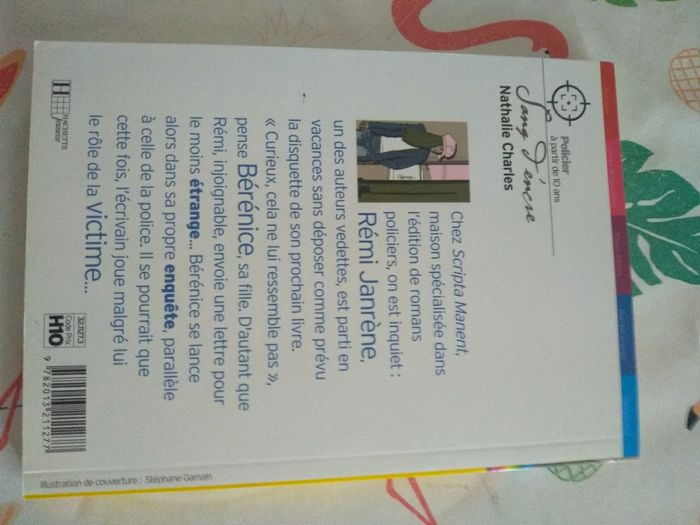 Policier
à partir de 10 ans
Sang d'encre
Nathalie Charles
Chez Scripta Manent,
maison spécialisée dans
l'édition de romans
policiers, on est inquiet :
Rémi Janrène,
un des auteurs vedettes, est parti en
vacances sans déposer comme prévu
la disquette de son prochain livre.
« Curieux, cela ne lui ressemble pas »,
pense Bérénice, sa fille. D'autant que
Rémi, injoignable, envoie une lettre pour
le moins étrange... Bérénice se lance
alors dans sa propre enquête, parallèle
à celle de la police. Il se pourrait que
cette fois, l'écrivain joue malgré lui
le rôle de la victime...
H HACHETTE
Jeunesse
32.1127.3
Code Prix
H10
9 782013 211277
Illustration de couverture : Stéphane Gamain